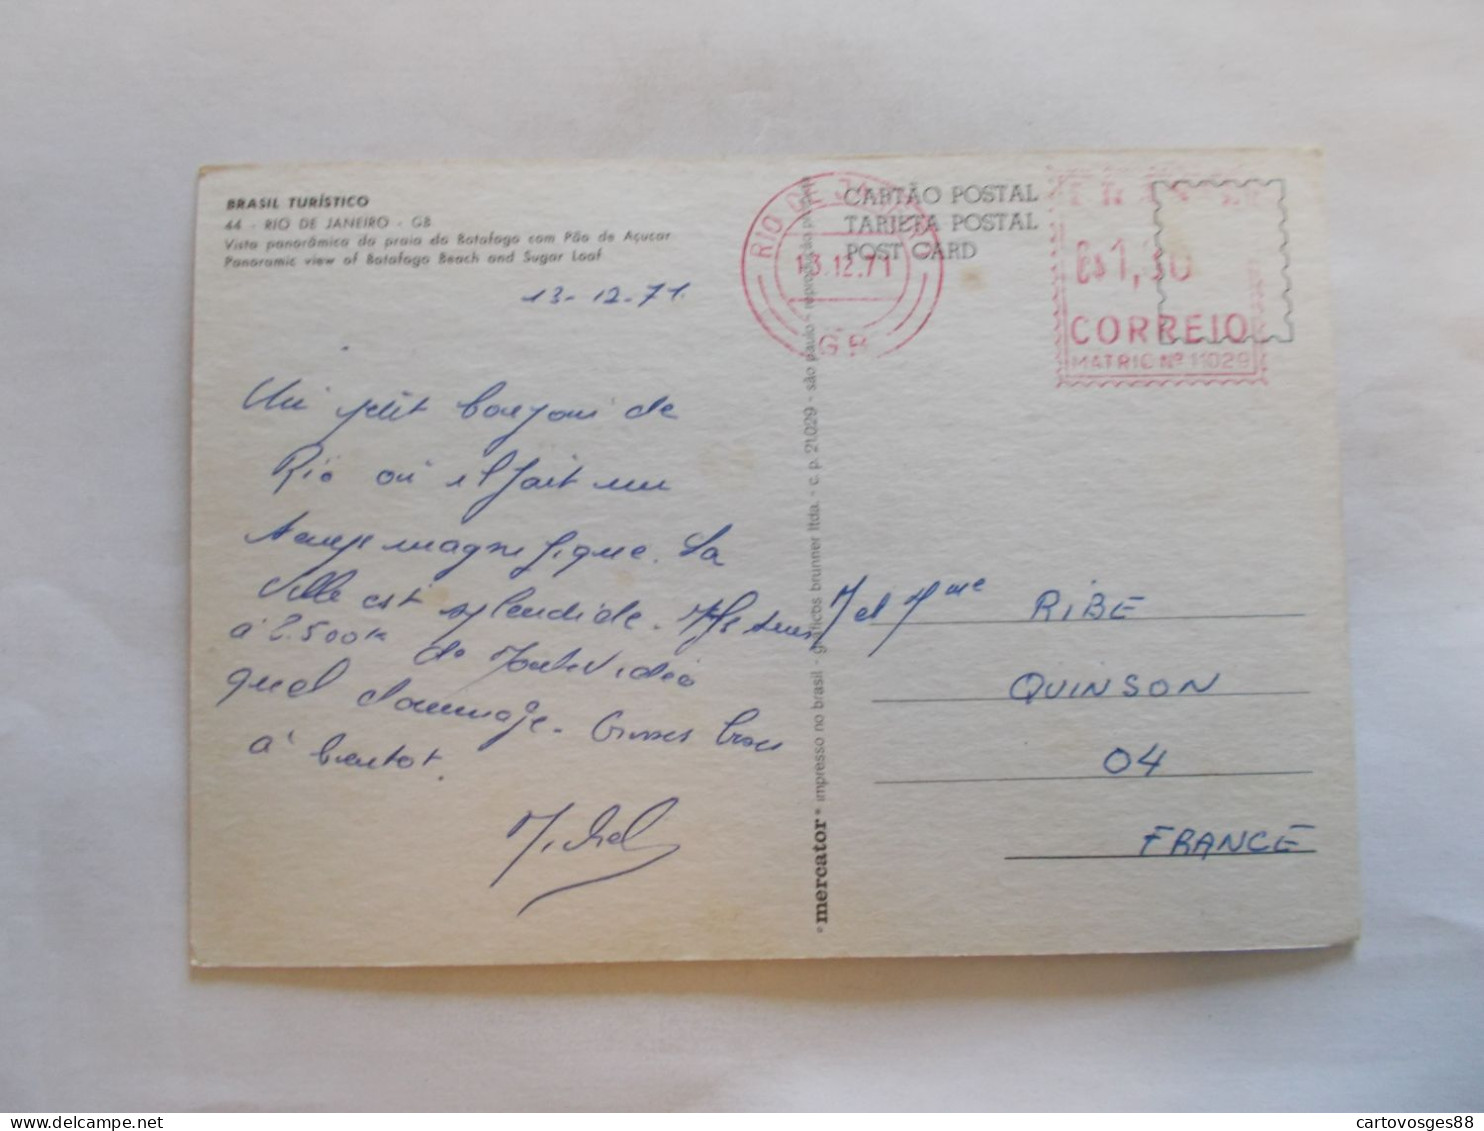 BRASIL TURÍSTICO
44 - RIO DE JANEIRO - GB
Vista panorâmica da praia do Botafogo com Pão de Açucar
Panoramic view of Botafogo Beach and Sugar Loaf
13-12-71.
Un petit bonjour de
Rio où il fait un
temps magnifique. La
ville est splendide.
à 2.500 K de Montevideo
quel dommage. Grosses bises
à bientot.
Michel
CARTÃO POSTAL
TARJETA POSTAL
POST CARD
RIO DE JA
13.12.71
GB
CORREIO
MATRIC Nº 11029
M et Mme RIBE
QUINSON
04
FRANCE
*mercator* impresso no brasil - gráficos brunner ltda. - c. p. 21.029 - são paulo - reprodução
cartovosges88